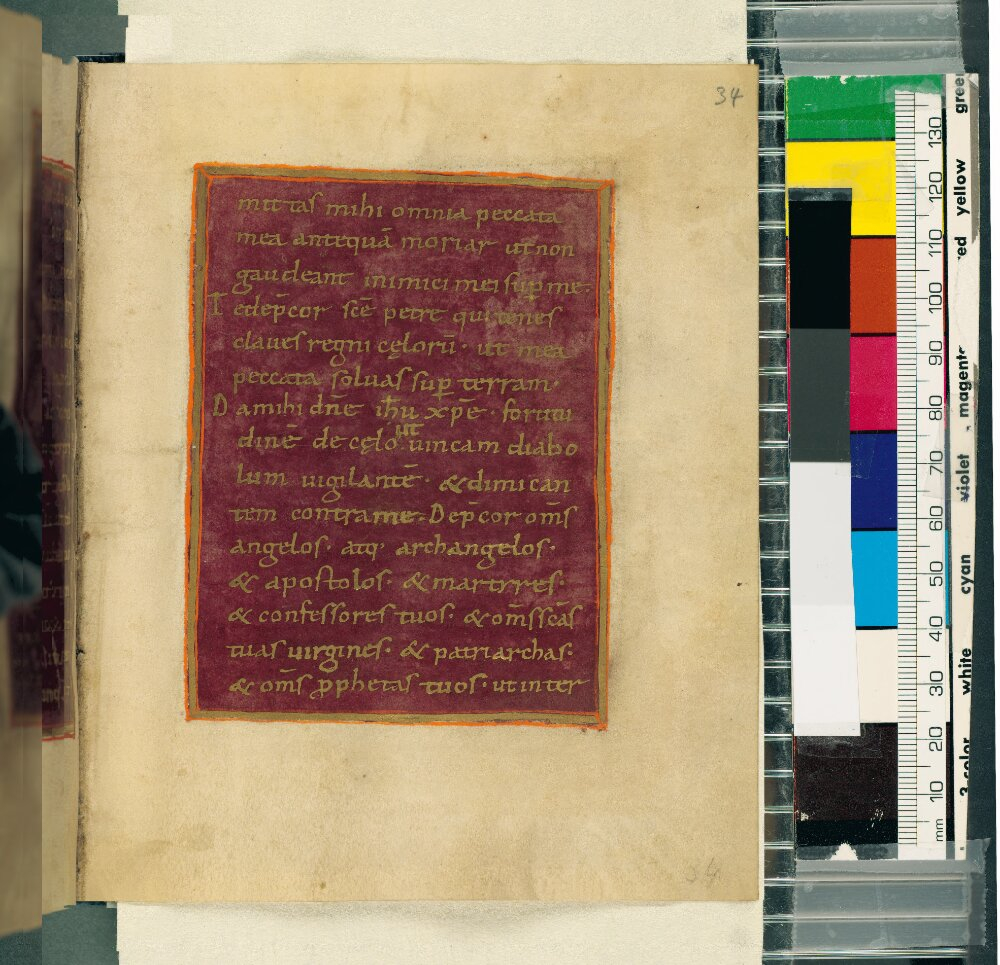 34
mittas mihi omnia peccata
mea antequā moriar ut non
gaudeant inimici mei sup̄ me·
Te dep̄cor scē petre qui tenes
claues regni cęlorū· ut mea
peccata soluas sup̄ terram·
Da mihi dn̄e ih̄u xp̄e· fortitu
dinē de cęlo· ut uincam diabo
lum uigilantē· & dimican
tem contra me· Dep̄cor om̄s
angelos· atq· archangelos·
& apostolos· & martyres·
& confessores tuos· & om̄s scās
tuas uirgines· & patriarchas·
& om̄s ꝓphetas tuos· ut inter
34
mm 10 20 30 40 50 60 70 80 90 100 110 120 130
3-color white cyan violet magent yellow gree